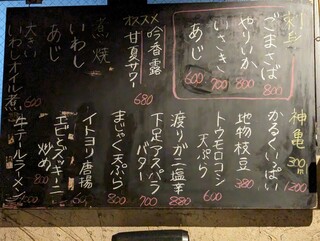 刺身
ごまさば 800
やりいか 800
いさき 700
あじ 600
オススメ
吟香露
甘夏サワー 680
煮 焼
いわし
あじ
大きい
いわしオイル煮 600
神亀 300ml 1200
かるくいっぱい
地物枝豆 380
トウモロコシ
天ぷら 600
渡りガニ塩辛 880
下足アスパラ
バター 700
ましゃく天ぷら 800
イトヨリ唐揚
エビとズッキーニ
炒め 800
牛テールラーメン